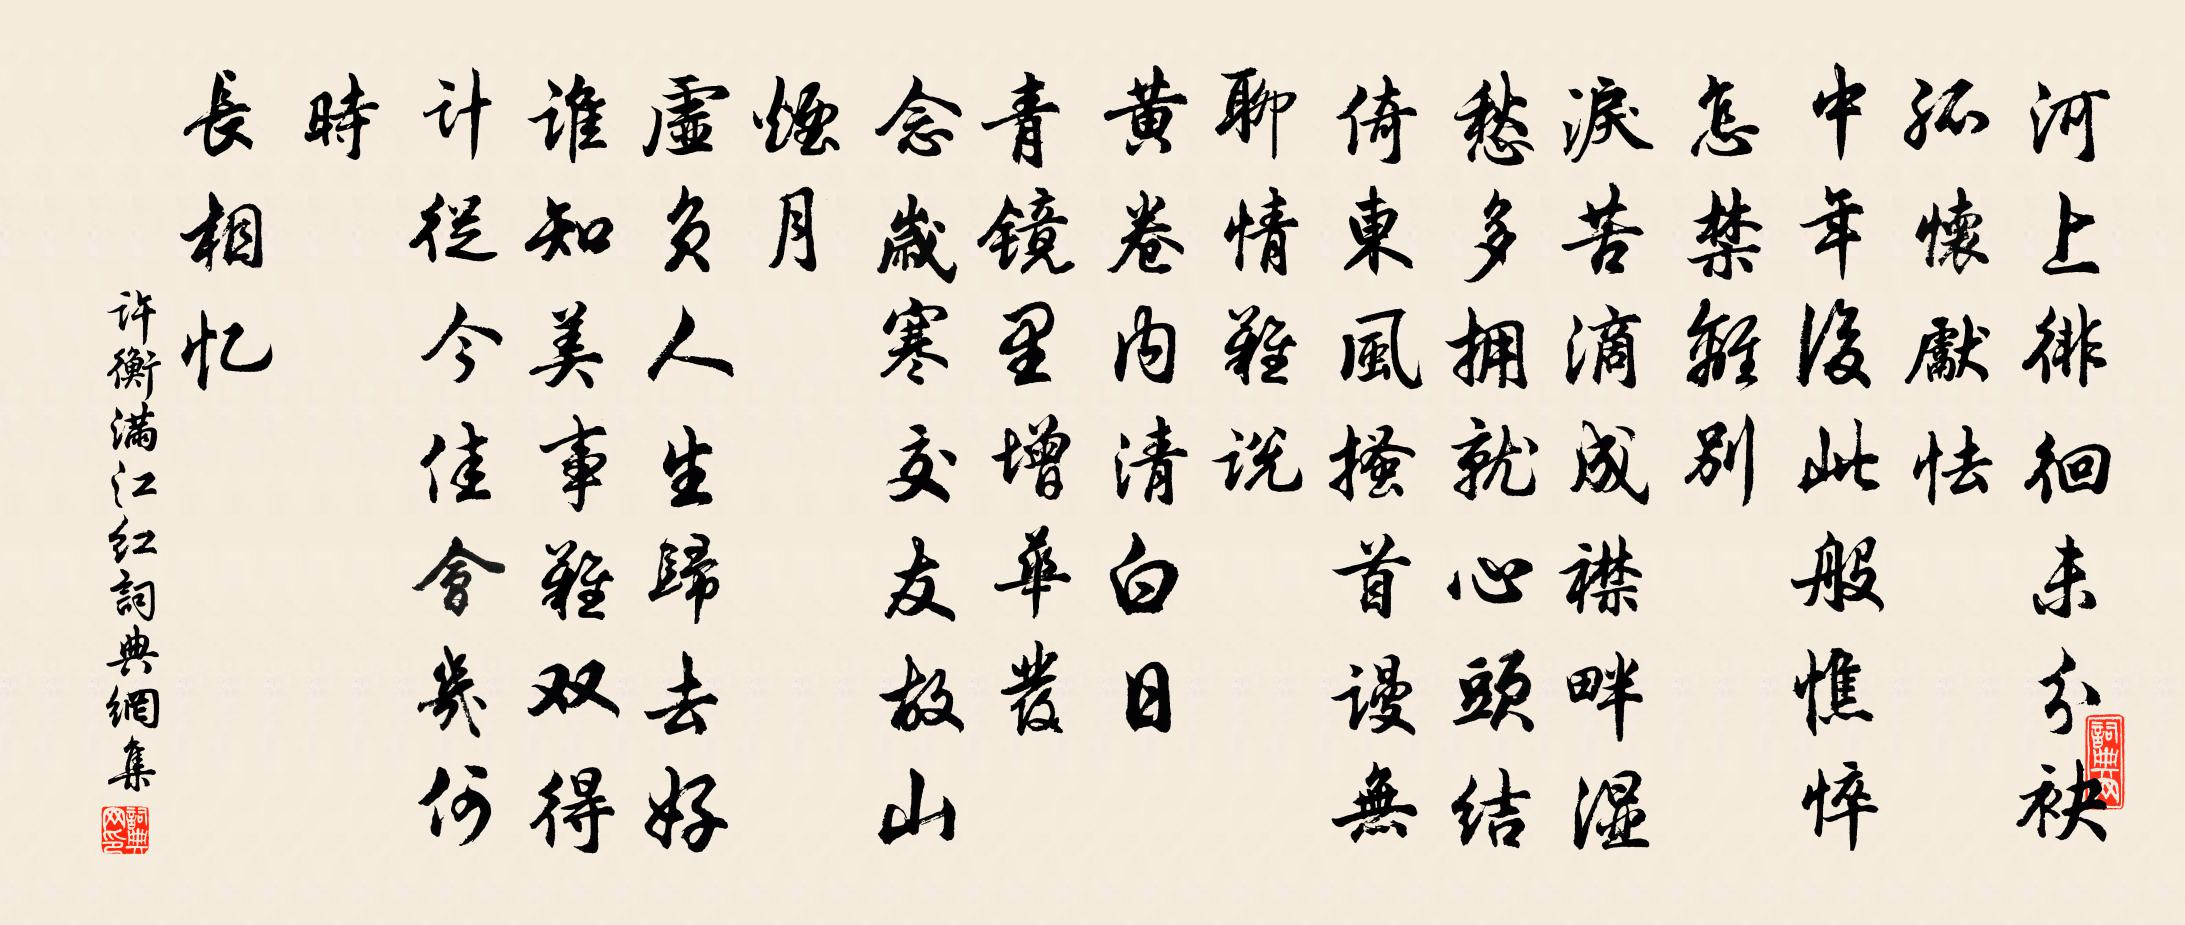 河上徘徊未分袂
孤懷獻怯
中年後此般憔悴
怎禁離别
淚苦滴成襟畔湿
愁多拥就心頭结
倚東風搔首谩無
聊情難说
黄卷内清白日
青镜里增華發
念歲寒交友故山
煙月
虛負人生歸去好
谁知美事難双得
计從今佳會幾何
時
長相忆
许衡满江红詞典網集
詞典网
詞典网印